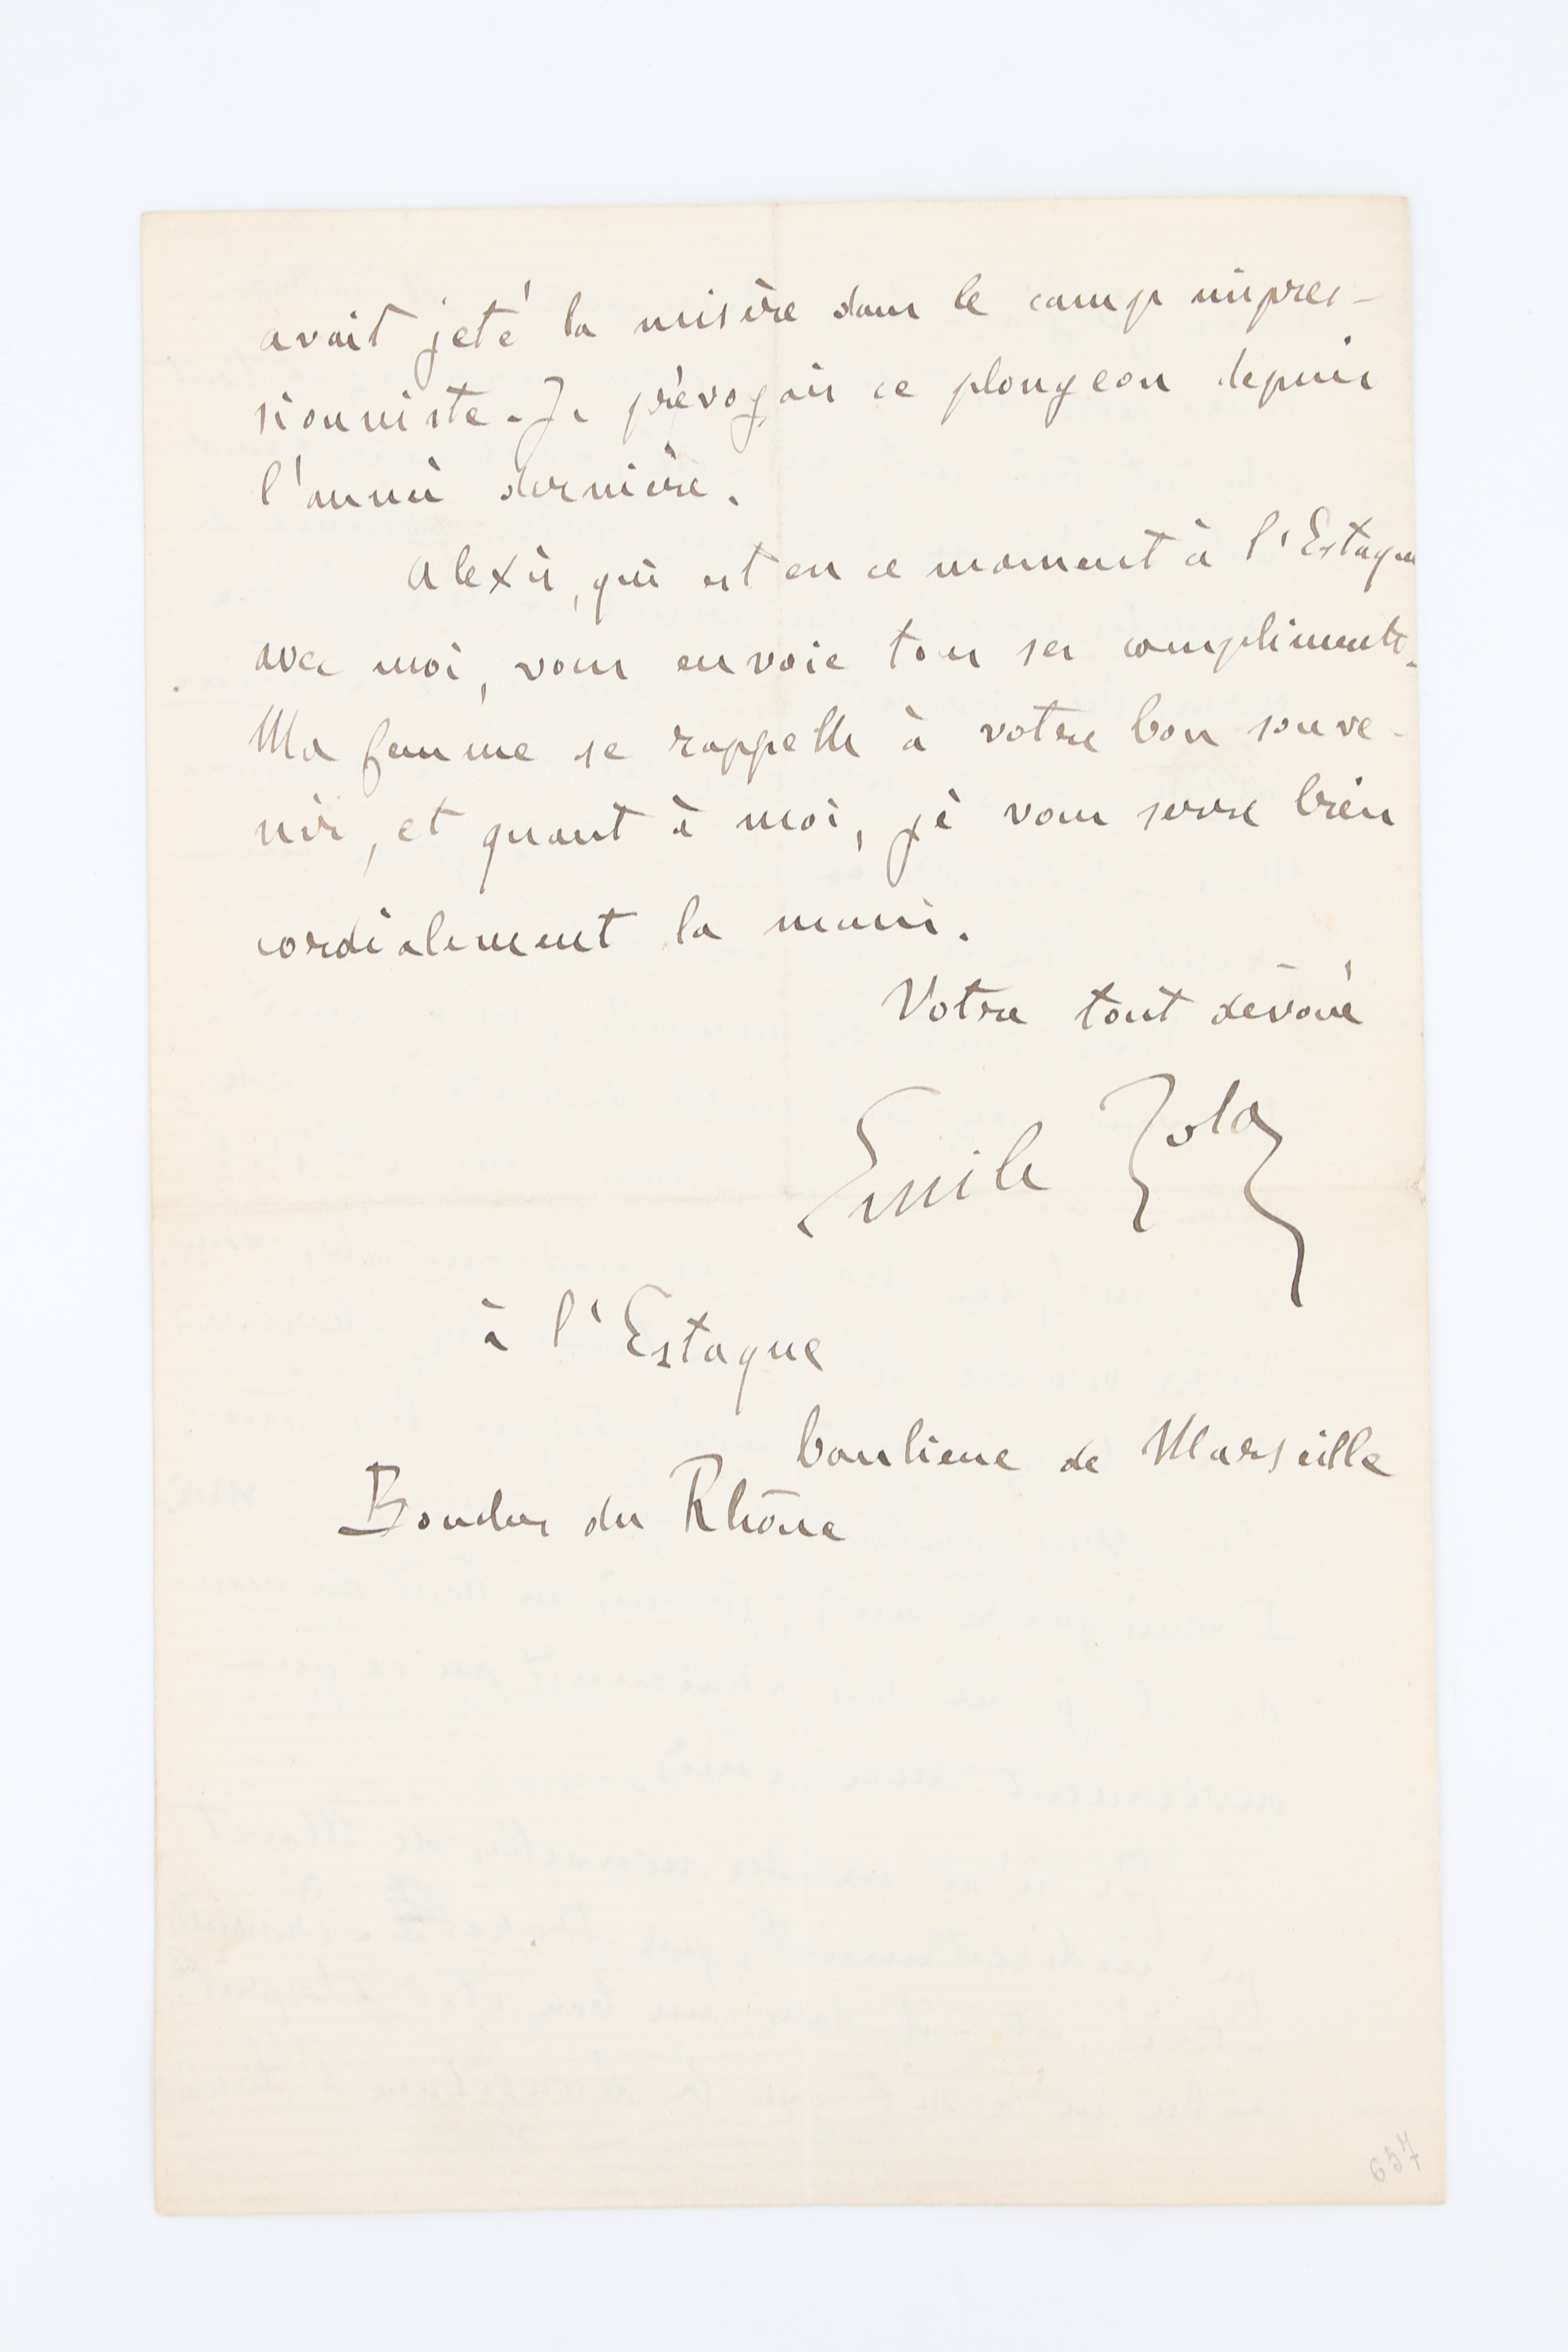 avait jeté la misère dans le camp impres-
sionniste. Je prévoyais ce plongeon depuis
l'année dernière.
Alexis, qui est en ce moment à l'Estaque
avec moi, vous envoie tous ses compliments.
Ma femme se rappelle à votre bon souve-
nir, et quant à moi, je vous serre bien
cordialement la main.
Votre tout dévoué
Emile Zola
à l'Estaque
banlieue de Marseille
Bouches du Rhône
657